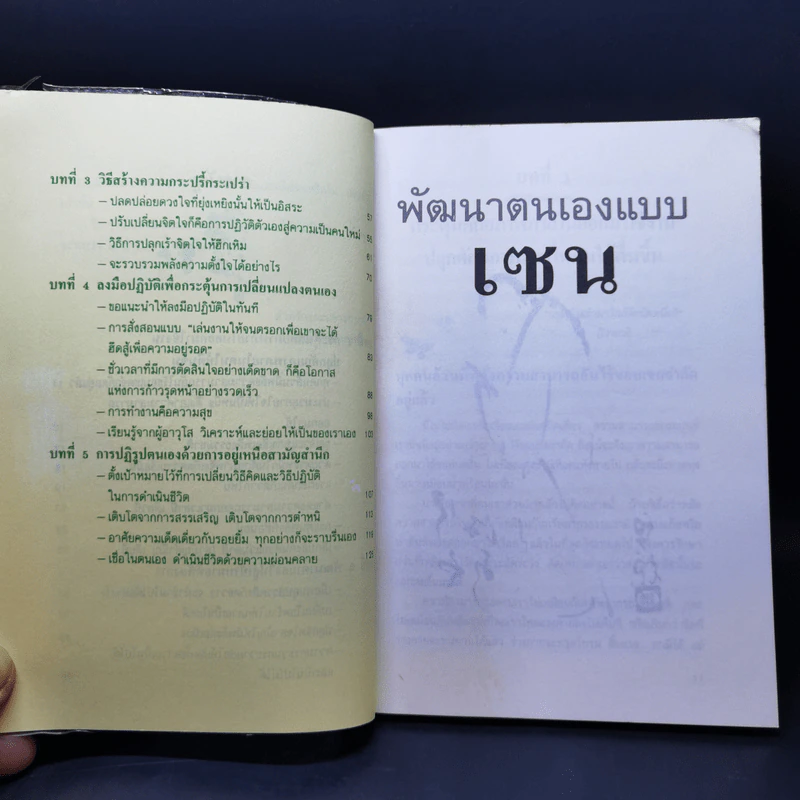 บทที่ 3 วิธีสร้างความกระปรี้กระเปร่า
—ปลดปล่อยดวงใจที่ยุ่งเหยิงนั้นให้เป็นอิสระ 51
—ปรับเปลี่ยนจิตใจก็คือการปฏิวัติตัวเองสู่ความเป็นคนใหม่ 56
—วิธีการปลุกเร้าจิตใจให้ฮึกเหิม 61
—จะรวบรวมพลังความตั้งใจได้อย่างไร 70
บทที่ 4 ลงมือปฏิบัติเพื่อกระตุ้นการเปลี่ยนแปลงตนเอง
—ขอแนะนำให้ลงมือปฏิบัติในทันที 76
—การสั่งสอนแบบ "เล่นงานให้จนตรอกเพื่อเขาจะได้
ฮึดสู้เพื่อความอยู่รอด" 83
—ชั่วเวลาที่มีการตัดสินใจอย่างเด็ดขาด ก็คือโอกาส
แห่งการก้าวรุดหน้าอย่างรวดเร็ว 88
—การทำงานคือความสุข 98
—เรียนรู้จากผู้อาวุโส วิเคราะห์และย่อยให้เป็นของเราเอง 100
บทที่ 5 การปฏิรูปตนเองด้วยการอยู่เหนือสามัญสำนึก
—ตั้งเป้าหมายไว้ที่การเปลี่ยนวิธีคิดและวิธีปฏิบัติ
ในการดำเนินชีวิต 107
—เติบโตจากการสรรเสริญ เติบโตจากการตำหนิ 113
—อาศัยความเด็ดเดี่ยวกับรอยยิ้ม ทุกอย่างก็จะราบรื่นเอง 119
—เชื่อในตนเอง ดำเนินชีวิตด้วยความผ่อนคลาย 125
พัฒนาตนเองแบบ
เซน